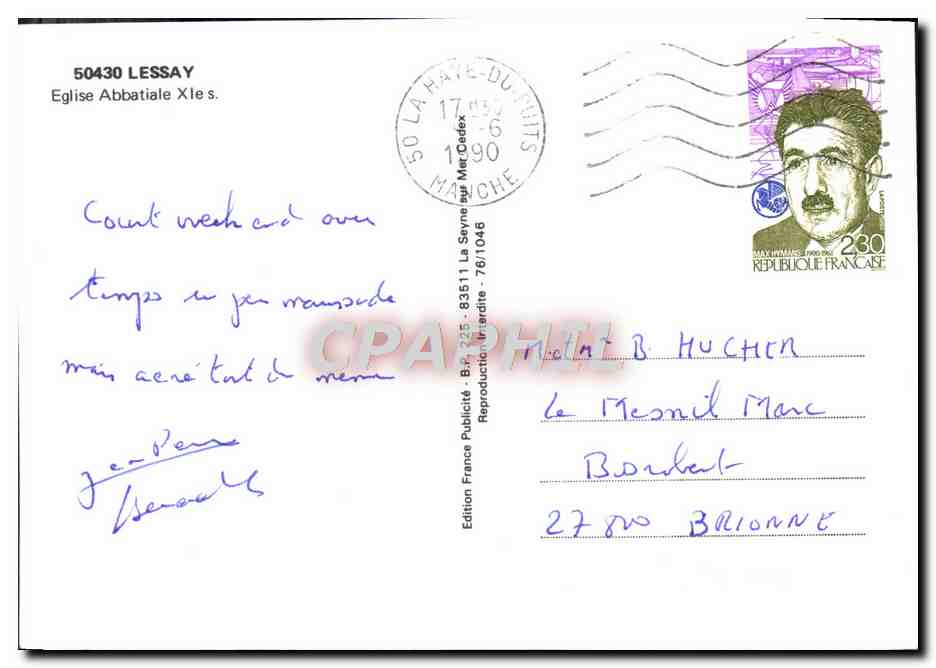 50430 LESSAY
Eglise Abbatiale XIe s.
50 LA HAYE-DU-PUITS
17
-6
1990
MANCHE
MAX HYMANS 1900-1961
2,30
REPUBLIQUE FRANÇAISE
Court week end avec
temps un peu maussade
mais aéré tout de même
Jean Pierre
Edition France Publicité - B.P. 225 - 83511 La Seyne sur Mer Cedex
Reproduction Interdite - 76/1046
CPAPHIL
M. et Me B. HUCHER
Le Mesnil Marc
27800 BRIONNE